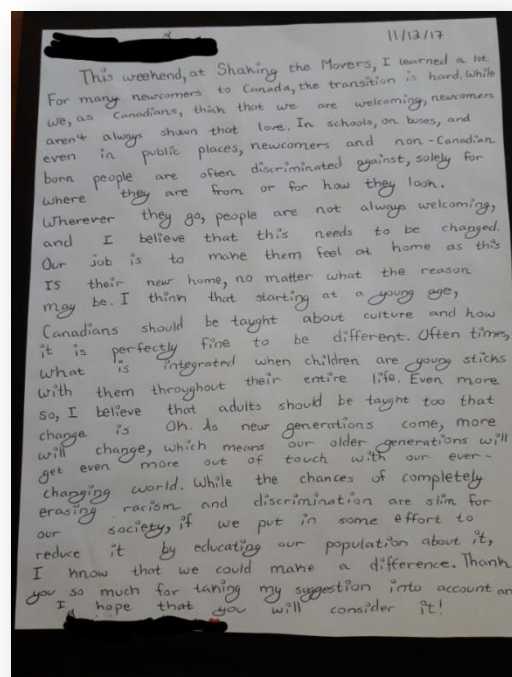 11/12/17
This weekend, at Shaking the Movers, I learned a lot.
For many newcomers to Canada, the transition is hard. While
we, as Canadians, think that we are welcoming, newcomers
aren't always shown that love. In schools, on buses, and
even in public places, newcomers and non-Canadian
born people are often discriminated against, solely for
where they are from or for how they look.
Wherever they go, people are not always welcoming,
and I believe that this needs to be changed.
Our job is to make them feel at home as this
IS their new home, no matter what the reason
may be. I think that starting at a young age,
Canadians should be taught about culture and how
it is perfectly fine to be different. Often times,
what is integrated when children are young sticks
with them throughout their entire life. Even more
so, I believe that adults should be taught too that
change is Ok. As new generations come, more
will change, which means our older generations will
get even more out of touch with our ever-
changing world. While the chances of completely
erasing racism and discrimination are slim for
our society, if we put in some effort to
reduce it by educating our population about it,
I know that we could make a difference. Thank
you so much for taking my suggestion into account an
I hope that you will consider it!